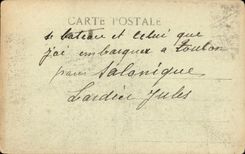 CARTE POSTALE
le bateau et celui que
j'ai embarquer a Toulon
pour Salonique
Lardier Jules